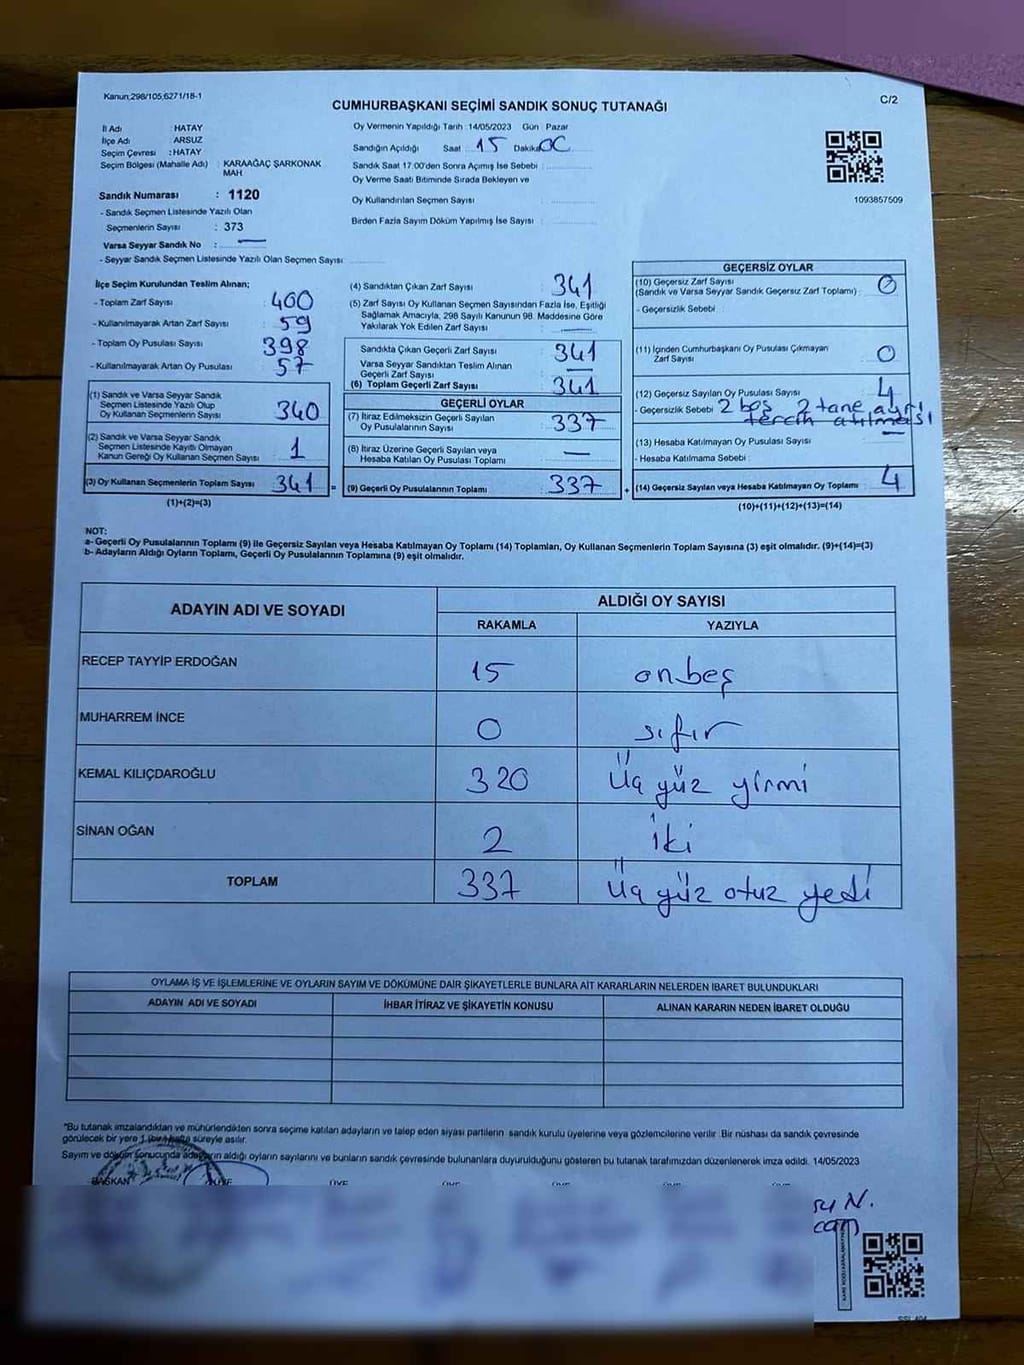 Kanun;298/105,6271/18-1
CUMHURBAŞKANI SEÇİMİ SANDIK SONUÇ TUTANAĞI
C/2
İl Adı : HATAY
İlçe Adı : ARSUZ
Seçim Çevresi : HATAY
Seçim Bölgesi (Mahalle Adı) : KARAAĞAÇ ŞARKONAK
MAH
Sandık Numarası : 1120
- Sandık Seçmen Listesinde Yazılı Olan
Seçmenlerin Sayısı : 373
Varsa Seyyar Sandık No : —
- Seyyar Sandık Seçmen Listesinde Yazılı Olan Seçmen Sayısı
Oy Vermenin Yapıldığı Tarih :14/05/2023 Gün : Pazar
Sandığın Açıldığı Saat 15 Dakika
Sandık Saat 17:00'den Sonra Açımış İse Sebebi :
Oy Verme Saati Bitiminde Sırada Bekleyen ve
Oy Kullandırılan Seçmen Sayısı :
Birden Fazla Sayım Döküm Yapılmış İse Sayısı :
1093857509
İlçe Seçim Kurulundan Teslim Alınan;
- Toplam Zarf Sayısı : 400
- Kullanılmayarak Artan Zarf Sayısı : 59
- Toplam Oy Pusulası Sayısı : 398
- Kullanılmayarak Artan Oy Pusulası : 57
(1) Sandık ve Varsa Seyyar Sandık
Seçmen Listesinde Yazılı Olup
Oy Kullanan Seçmenlerin Sayısı : 340
(2) Sandık ve Varsa Seyyar Sandık
Seçmen Listesinde Kayıtlı Olmayan
Kanun Gereği Oy Kullanan Seçmen Sayısı : 1
(3) Oy Kullanan Seçmenlerin Toplam Sayısı : 341
(1)+(2)=(3)
(4) Sandıktan Çıkan Zarf Sayısı : 341
(5) Zarf Sayısı Oy Kullanan Seçmen Sayısından Fazla İse, Eşitliği
Sağlamak Amacıyla, 298 Sayılı Kanunun 98. Maddesine Göre
Yakılarak Yok Edilen Zarf Sayısı : —
Sandıkta Çıkan Geçerli Zarf Sayısı : 341
Varsa Seyyar Sandıktan Teslim Alınan
Geçerli Zarf Sayısı : —
(6) Toplam Geçerli Zarf Sayısı : 341
GEÇERLİ OYLAR
(7) İtiraz Edilmeksizin Geçerli Sayılan
Oy Pusulalarının Sayısı : 337
(8) İtiraz Üzerine Geçerli Sayılan veya
Hesaba Katılan Oy Pusulası Toplamı : —
= (9) Geçerli Oy Pusulalarının Toplamı : 337
GEÇERSİZ OYLAR
(10) Geçersiz Zarf Sayısı
(Sandık ve Varsa Seyyar Sandık Geçersiz Zarf Toplamı) : 0
- Geçersizlik Sebebi :
(11) İçinden Cumhurbaşkanı Oy Pusulası Çıkmayan
Zarf Sayısı : 0
(12) Geçersiz Sayılan Oy Pusulası Sayısı : 4
- Geçersizlik Sebebi : 2 boş 2 tane ayrı
tercih atılması
(13) Hesaba Katılmayan Oy Pusulası Sayısı : —
- Hesaba Katılmama Sebebi :
+ (14) Geçersiz Sayılan veya Hesaba Katılmayan Oy Toplamı : 4
(10)+(11)+(12)+(13)=(14)
NOT:
a- Geçerli Oy Pusulalarının Toplamı (9) ile Geçersiz Sayılan veya Hesaba Katılmayan Oy Toplamı (14) Toplamları, Oy Kullanan Seçmenlerin Toplam Sayısına (3) eşit olmalıdır. (9)+(14)=(3)
b- Adayların Aldığı Oyların Toplamı, Geçerli Oy Pusulalarının Toplamına (9) eşit olmalıdır.
ADAYIN ADI VE SOYADI
ALDIĞI OY SAYISI
RAKAMLA YAZIYLA
RECEP TAYYİP ERDOĞAN 15 onbeş
MUHARREM İNCE 0 sıfır
KEMAL KILIÇDAROĞLU 320 Üç yüz yirmi
SİNAN OĞAN 2 iki
TOPLAM 337 Üç yüz otuz yedi
OYLAMA İŞ VE İŞLEMLERİNE VE OYLARIN SAYIM VE DÖKÜMÜNE DAİR ŞİKAYETLERLE BUNLARA AİT KARARLARIN NELERDEN İBARET BULUNDUKLARI
ADAYIN ADI VE SOYADI İHBAR İTİRAZ VE ŞİKAYETİN KONUSU ALINAN KARARIN NEDEN İBARET OLDUĞU
*Bu tutanak imzalandıktan ve mühürlendikten sonra seçime katılan adayların ve talep eden siyasi partilerin sandık kurulu üyelerine veya gözlemcilerine verilir .Bir nüshası da sandık çevresinde
görülecek bir yere 1 (bir) hafta süreyle asılır.
Sayım ve döküm sonucunda adayların aldığı oyların sayılarını ve bunların sandık çevresinde bulunanlara duyurulduğunu gösteren bu tutanak tarafımızdan düzenlenerek imza edildi. 14/05/2023
BAŞKAN ÜYE ÜYE